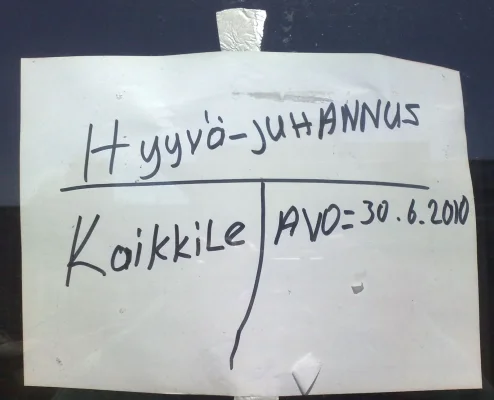 Hyyvä-JUHANNUS
KaikkiLe
AVO=30.6.2010